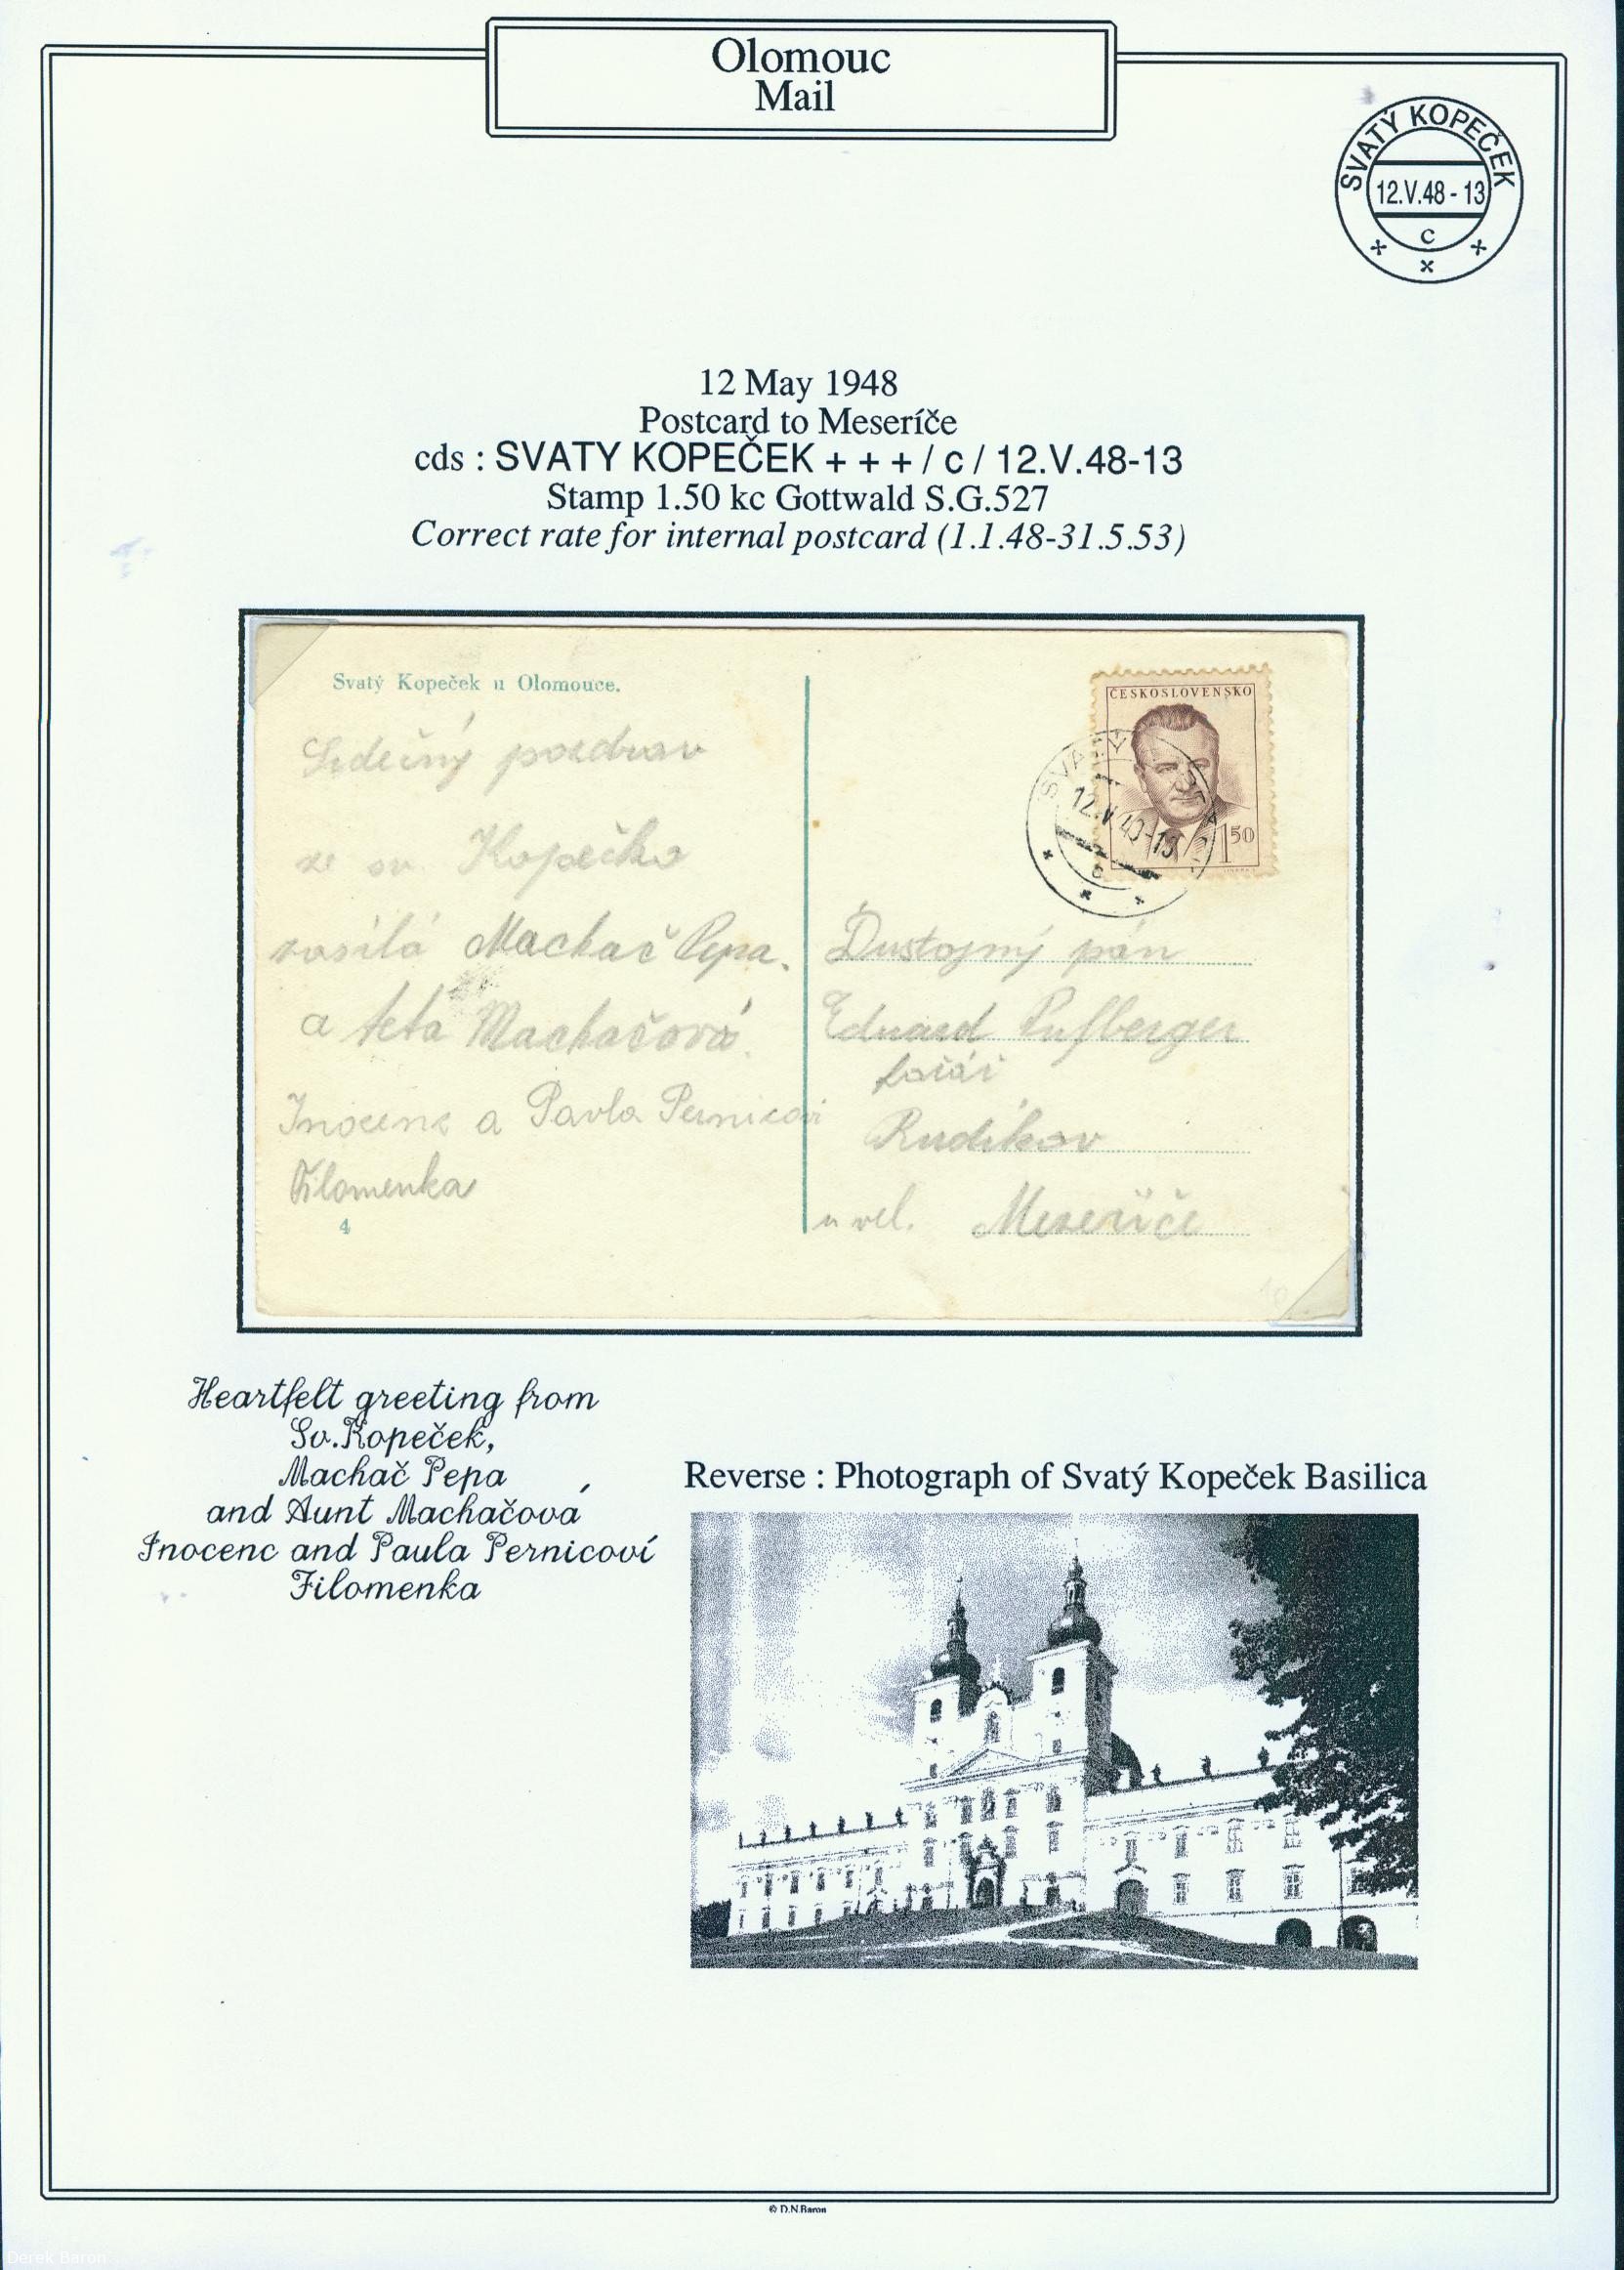 Olomouc
Mail
SVATÝ KOPEČEK
12.V.48 - 13
c
12 May 1948
Postcard to Meseríče
cds : SVATY KOPEČEK + + + / c / 12.V.48-13
Stamp 1.50 kc Gottwald S.G.527
Correct rate for internal postcard (1.1.48-31.5.53)
Svatý Kopeček u Olomouce.
ČESKOSLOVENSKO
1 50
SVATÝ
12.V.48-13
c
Srdečný pozdrav
ze sv. Kopečka
zasílá Machač Pepa.
a teta Machačová.
Inocenc a Pavla Pernicovi
Filomenka
4
Důstojný pán
Eduard
farář
Rudíkov
u vel. Meseříče
Heartfelt greeting from
Sv.Kopeček,
Machač Pepa
and Aunt Machačová
Inocenc and Paula Pernicoví
Filomenka
Reverse : Photograph of Svatý Kopeček Basilica
© D.N.Baron
Derek Baron